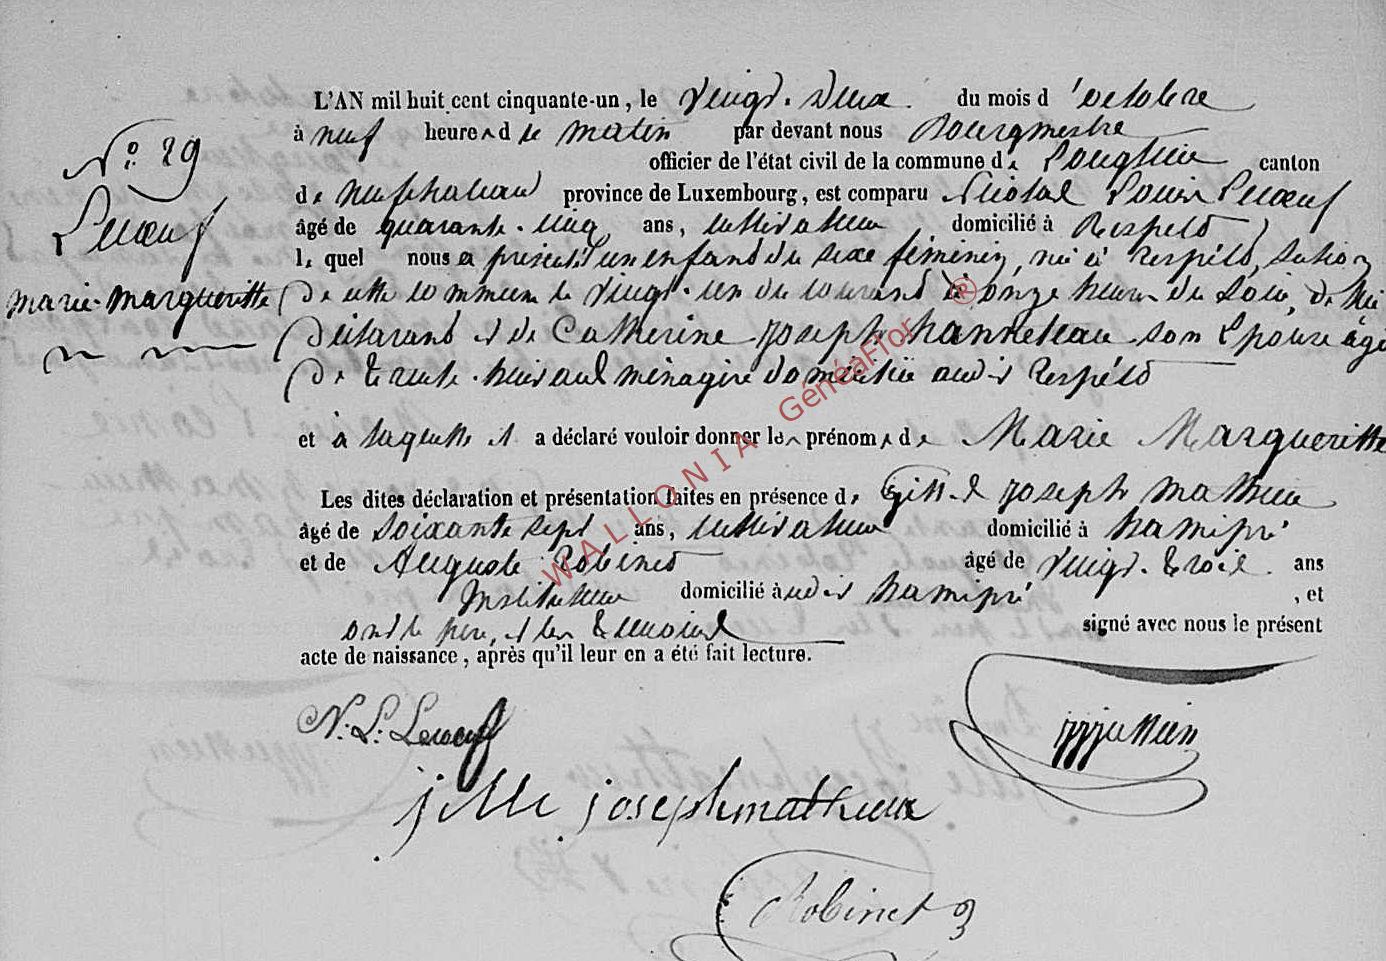 N.° 29
Lecœuf
marie-margueritte
L'AN mil huit cent cinquante-un, le vingt-deux du mois d'octobre
à neuf heures d le matin par devant nous Bourgmestre
officier de l'état civil de la commune de Longlier canton
de neufchateau province de Luxembourg, est comparu Nicolas Louis Lecœuf
âgé de quarante-cinq ans, cultivateur domicilié à Respelt
le quel nous a présenté un enfant du sexe féminin, née à Respelt, section
de cette commune le vingt-un du courant à onze heures du soir, de lui
déclarant et de Catherine Joseph hanneteau son Epouse âgée
de trente-huit ans ménagère domiciliée audit Respelt
et à laquelle il a déclaré vouloir donner les prénoms de Marie Margueritte
Les dites déclaration et présentation faites en présence de Gilles Joseph mathieu
âgé de soixante sept ans, cultivateur domicilié à hamipré
et de Auguste Robinet âgé de vingt-trois ans
Instituteur domicilié audit hamipré , et
ont le père, et les témoins signé avec nous le présent
acte de naissance, après qu'il leur en a été fait lecture.
N. L. Lecœuf
jille joseph mathieux
Robinet
WALLONIA GénéaFlor ®